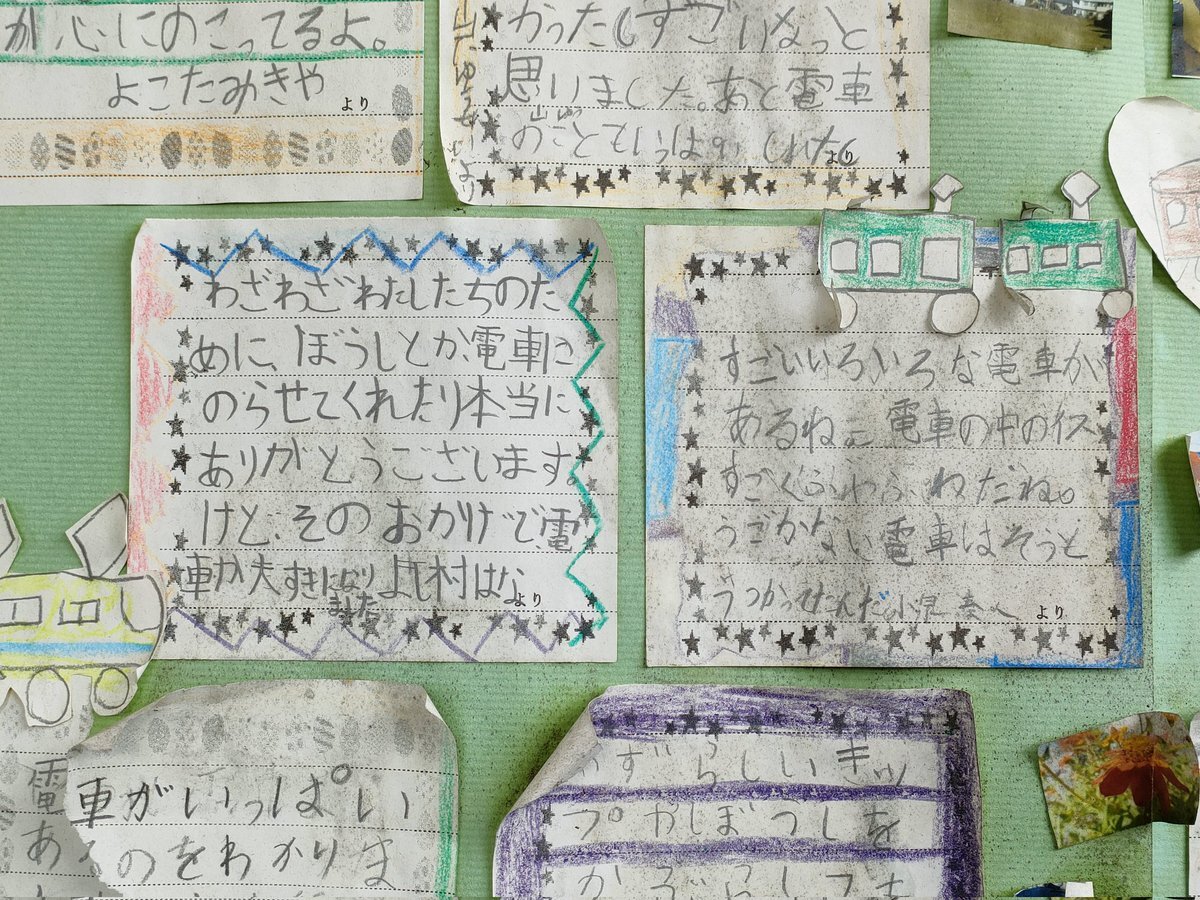 が心にのこってるよ。
よこたみきや
より
かったしすごいなっと
思いました。あと電車
のことも
わざわざわたしたちのた
めに、ぼうしとか、電車に
のらせてくれたり本当に
ありがとうございます。
けど、そのおかげで、電
車が大すきになり
ました
村はな
より
すごいいろいろな電車が
あるねぇ電車の中のイス
すごくふわふわだね。
うごかない電車はそうと
うつかってたんだ。
より
車がいっぱい
のをわかりま
ずらしいキッ
プやぼうしを
電
あ